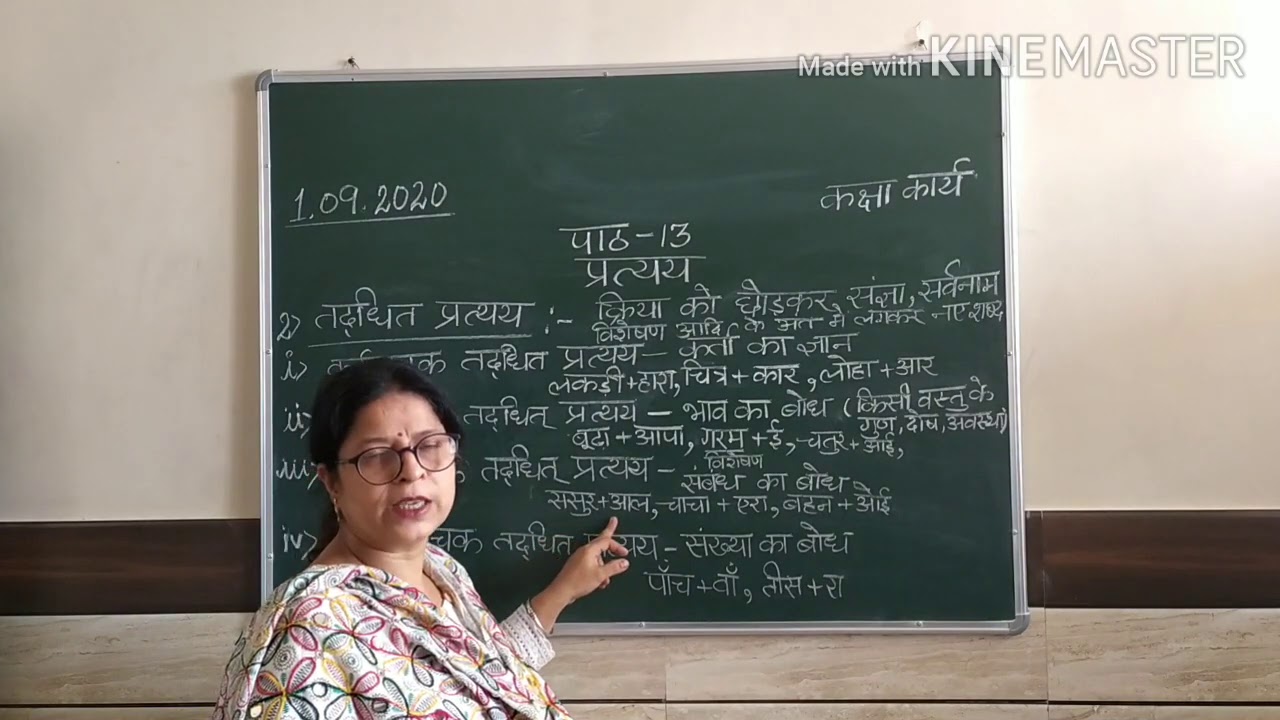 Made with KINEMASTER
1.09.2020
कक्षा कार्य
पाठ-13
प्रत्यय
2> तद्धित प्रत्यय :- क्रिया को छोड़कर, संज्ञा, सर्वनाम
विशेषण आदि के अंत में लगकर नए शब्द
i> तद्धित प्रत्यय - कर्ता का ज्ञान
लकड़ी+हारा, चित्र+कार, लोहा+आर
ii> तद्धित् प्रत्यय - भाव का बोध (किसी वस्तु के
गुण, दोष, अवस्था)
बूढा+आपा, गरम+ई, चतुर+आई,
विशेषण
iii> तद्धित् प्रत्यय - संबंध का बोध
ससुर+आल, चाचा+एरा, बहन+ओई
iv> तद्धित प्रत्यय - संख्या का बोध
पाँच+वाँ, तीस+रा